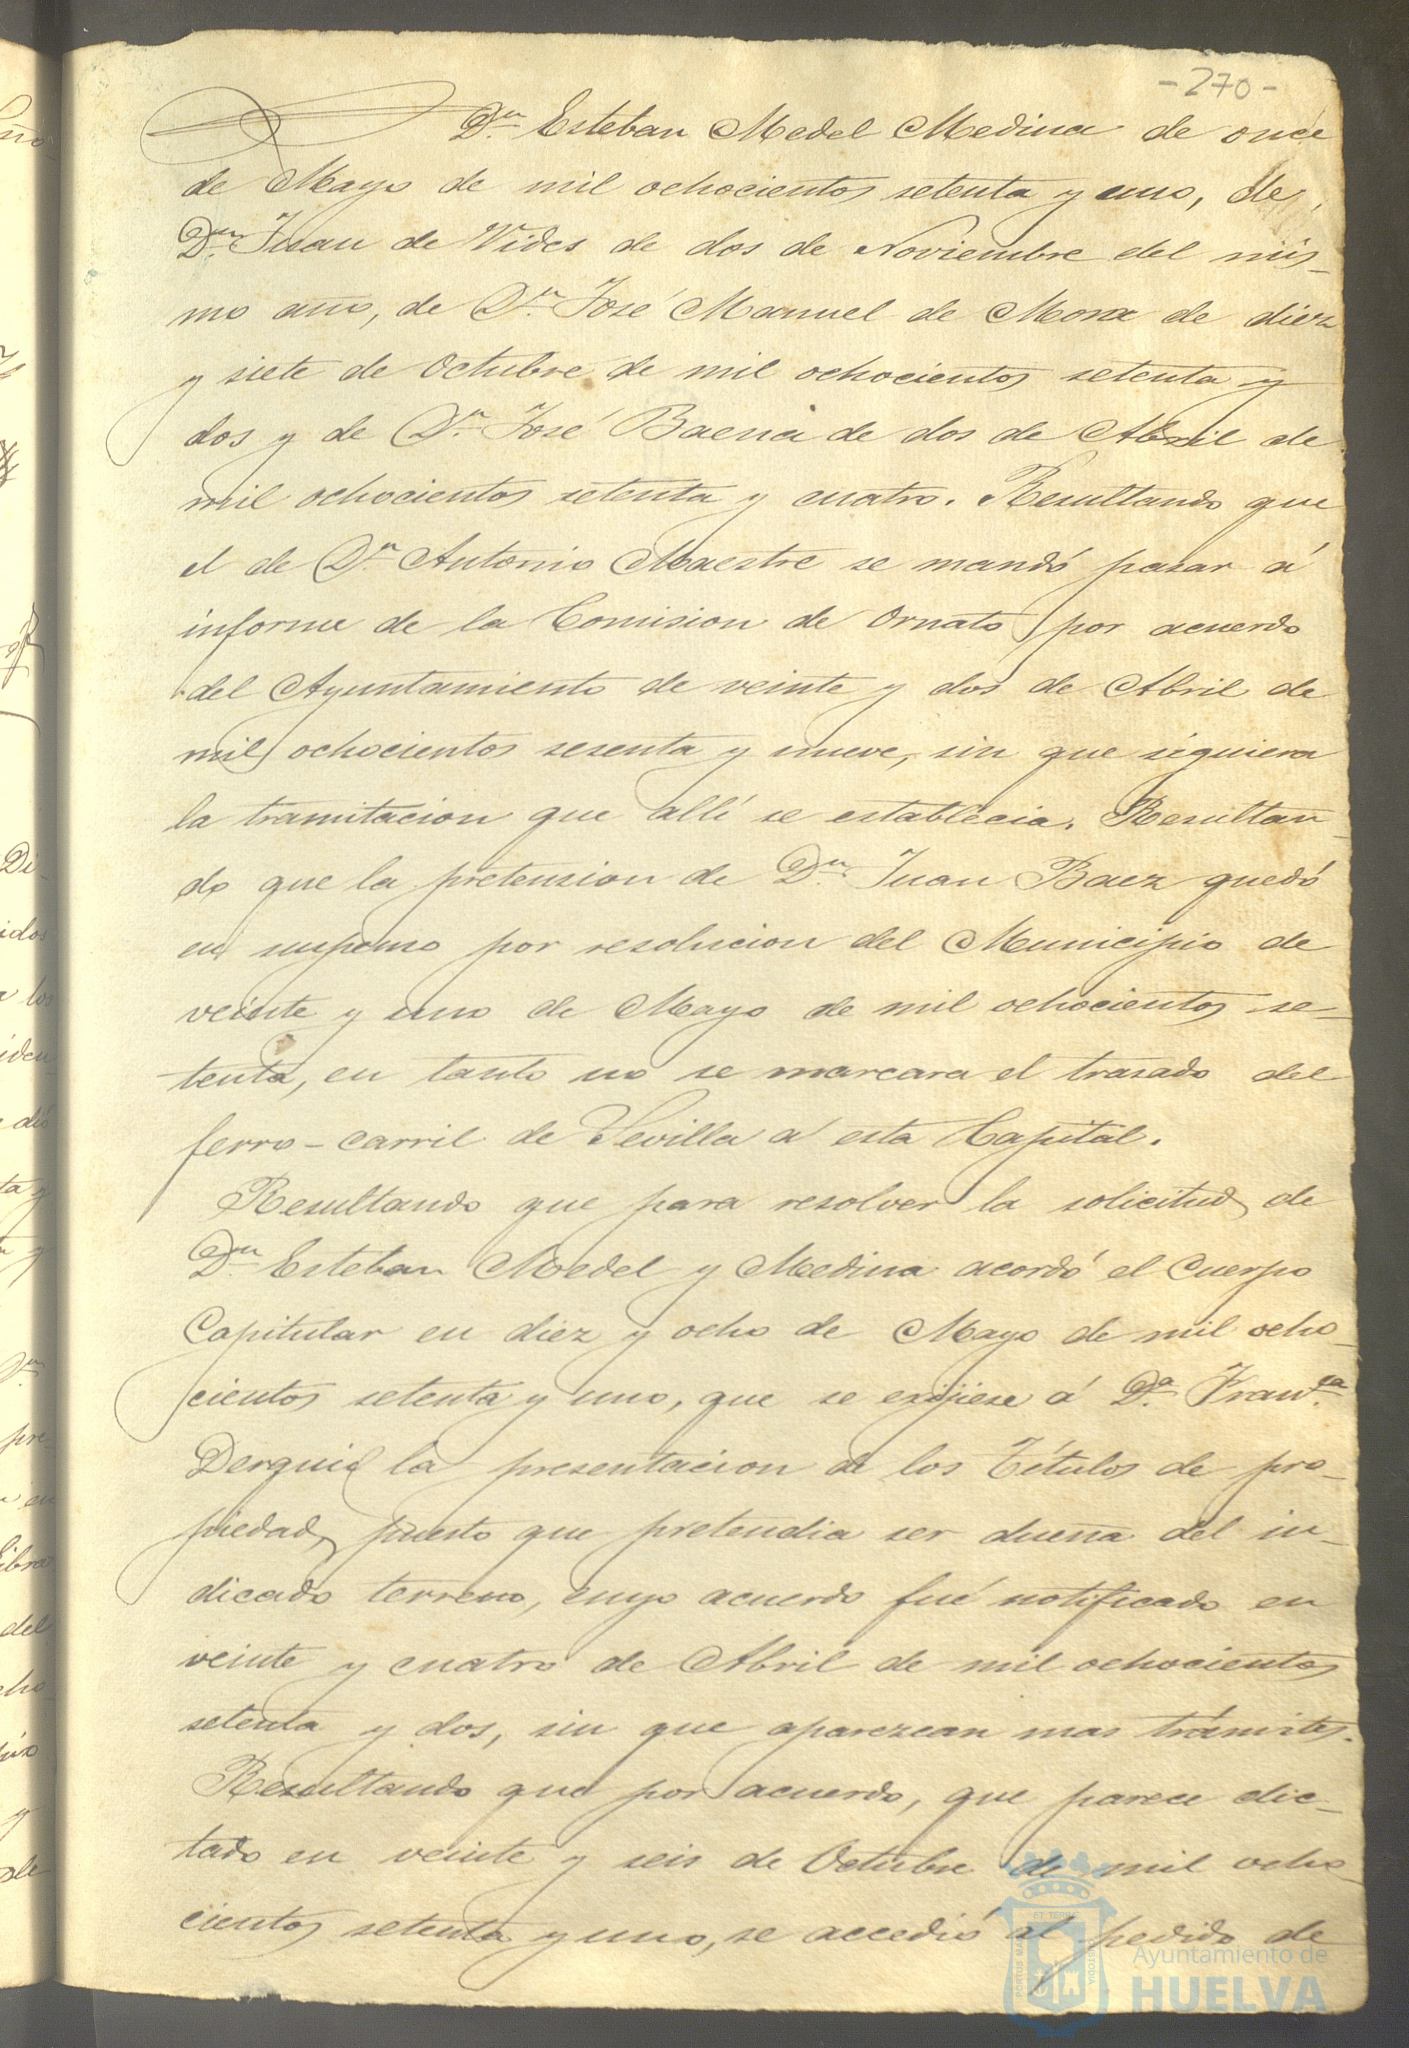 -270-
Dn. Esteban Medel Medina de once
de Mayo de mil ochocientos setenta y uno, de
Dn. Juan de Vides de dos de Noviembre del mis-
mo año, de Dn. José Manuel de Mora de diez
y siete de Octubre de mil ochocientos setenta y
dos y de Dn. José Baena de dos de Abril de
mil ochocientos setenta y cuatro. Resultando que
el de Dn. Antonio Maestre se mandó pasar á
informe de la Comision de Ornato por acuerdo
del Ayuntamiento de veinte y dos de Abril de
mil ochocientos sesenta y nueve, sin que siguiera
la tramitacion que alli se establecia. Resultan-
do que la pretension de Dn. Juan Baez quedó
en suspenso por resolucion del Municipio de
veinte y uno de Mayo de mil ochocientos se-
tenta, en tanto no se marcara el trasado del
ferro-carril de Sevilla á esta Capital.
Resultando que para resolver la solicitud de
Dn. Esteban Medel y Medina acordó el Cuerpo
Capitular en diez y ocho de Mayo de mil ocho-
cientos setenta y uno, que se exijiese á Da. Franca.
Derqui la presentacion de los Títulos de pro-
piedad, puesto que pretendia ser dueña del in-
dicado terreno, cuyo acuerdo fué notificado en
veinte y cuatro de Abril de mil ochocientos
setenta y dos, sin que aparezcan mas trámites.
Resultando que por acuerdo, que parece dic-
tado en veinte y seis de Octubre de mil ocho-
cientos setenta y uno, se accedió al pedido de
Ayuntamiento de
HUELVA